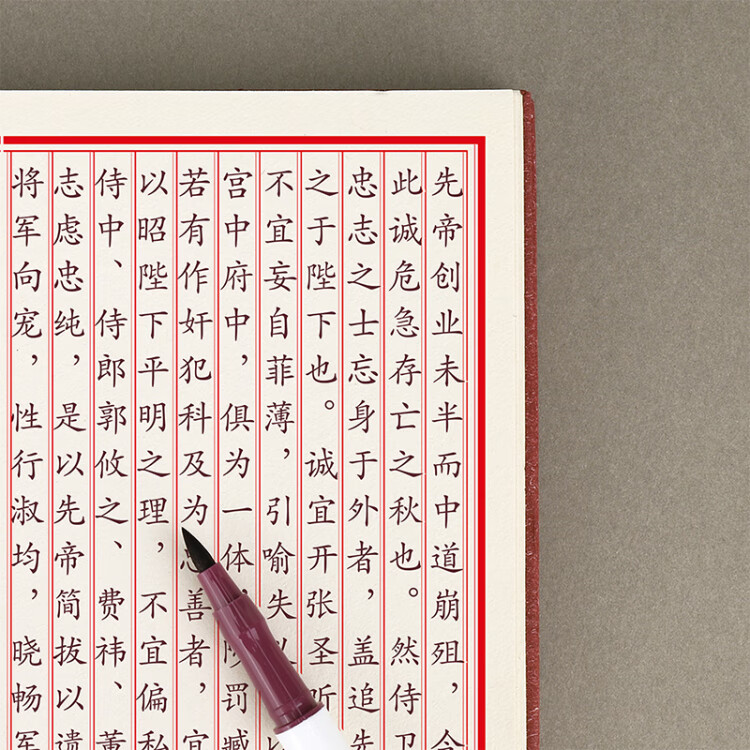 先帝创业未半而中道崩殂，今
此诚危急存亡之秋也。然侍卫
忠志之士忘身于外者，盖追先
之于陛下也。诚宜开张圣听
不宜妄自菲薄，引喻失
宫中府中，俱为一体，陟罚臧
若有作奸犯科及为忠善者，宜
以昭陛下平明之理，不宜偏私
侍中、侍郎郭攸之、费祎、董
志虑忠纯，是以先帝简拔以遗
将军向宠，性行淑均，晓畅军